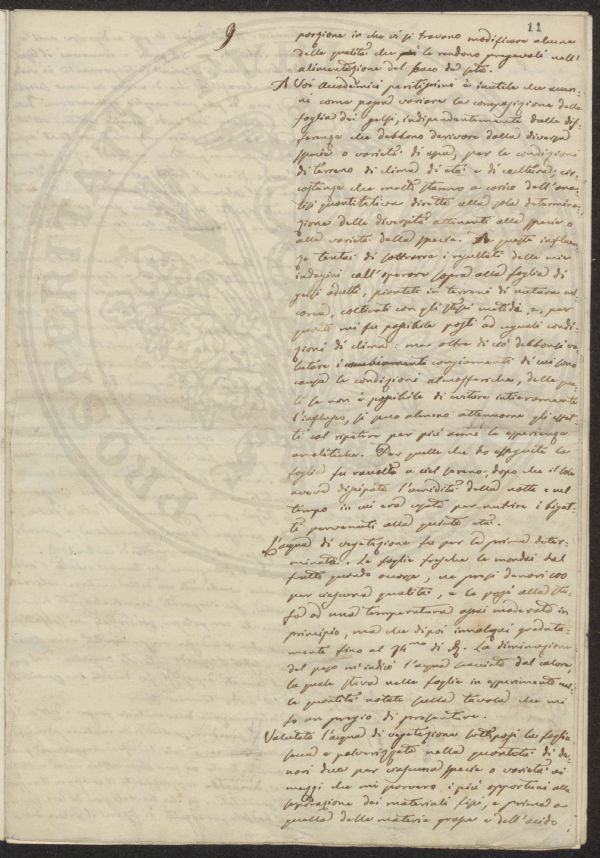 9
11
porzione in che vi si trovano modificare alcune
delle qualità che la rendono pregevole nell'
alimentazione del baco da seta.
A Voi Accademici peritissimi è inutile che accen-
ni come possa variare la composizione della
foglia dei gelsi, indipendentemente dalle dif-
ferenze che debbono derivare dalla diversa
specie o varietà di essa, per le condizioni
di terreno di clima di età e di coltura; cir-
costanze che molto stanno a carico dell'ana-
lisi quantitativa diretta alla sola determina-
zione delle diversità attenenti alla specie o
alla varietà della specie. A queste influen-
ze tentai di sottrarre i risultati delle mie
indagini coll'operare sopra alla foglia di
gelsi adulti, piantati in terreni di natura
coltivati con gli stessi metodi e, per
quanto mi fu possibile posti ad eguali condi-
zioni di clima: ma oltre di ciò debbonsi va-
lutare i cambiamenti cangiamenti di cui sono
causa le condizioni atmosferiche, delle qua-
li se non è possibile di evitare interamente
l'influsso, si può almeno attenuarne gli effet-
ti col ripetere per più anni le esperienze
analitiche. Per quelle che ho eseguite la
foglia fu raccolta a ciel sereno, dopo che il sole
aveva dissipata l'umidità della notte e nel
tempo in cui era usata per nutrire i bigat-
ti pervenuti alla quinta età.
L'acqua di vegetazione fu per la prima deter-
minata. Le foglie fresche le mondai dal
frutto quando occorse, ne presi denari 100
per ciascuna qualità, e le posi alla stu-
fa ad una temperatura assai moderata in
principio, ma che dipoi innalzai gradata-
mente fino al di R. La diminuzione
del peso m'indicò l'acqua scacciata dal calore
la quale stava nelle foglie in esperimento nel-
le quantità notate sulla tavola che mi
fo un pregio di presentare.
Valutata l'acqua di vegetazione sottoposi la foglia
secca e polverizzata nella quantità di de-
nari dieci per ciascuna specie o varietà ai
mezzi che mi parvero i più opportuni alla
separazione dei materiali fissi, e prima a
quella della materia grassa e dell'acido